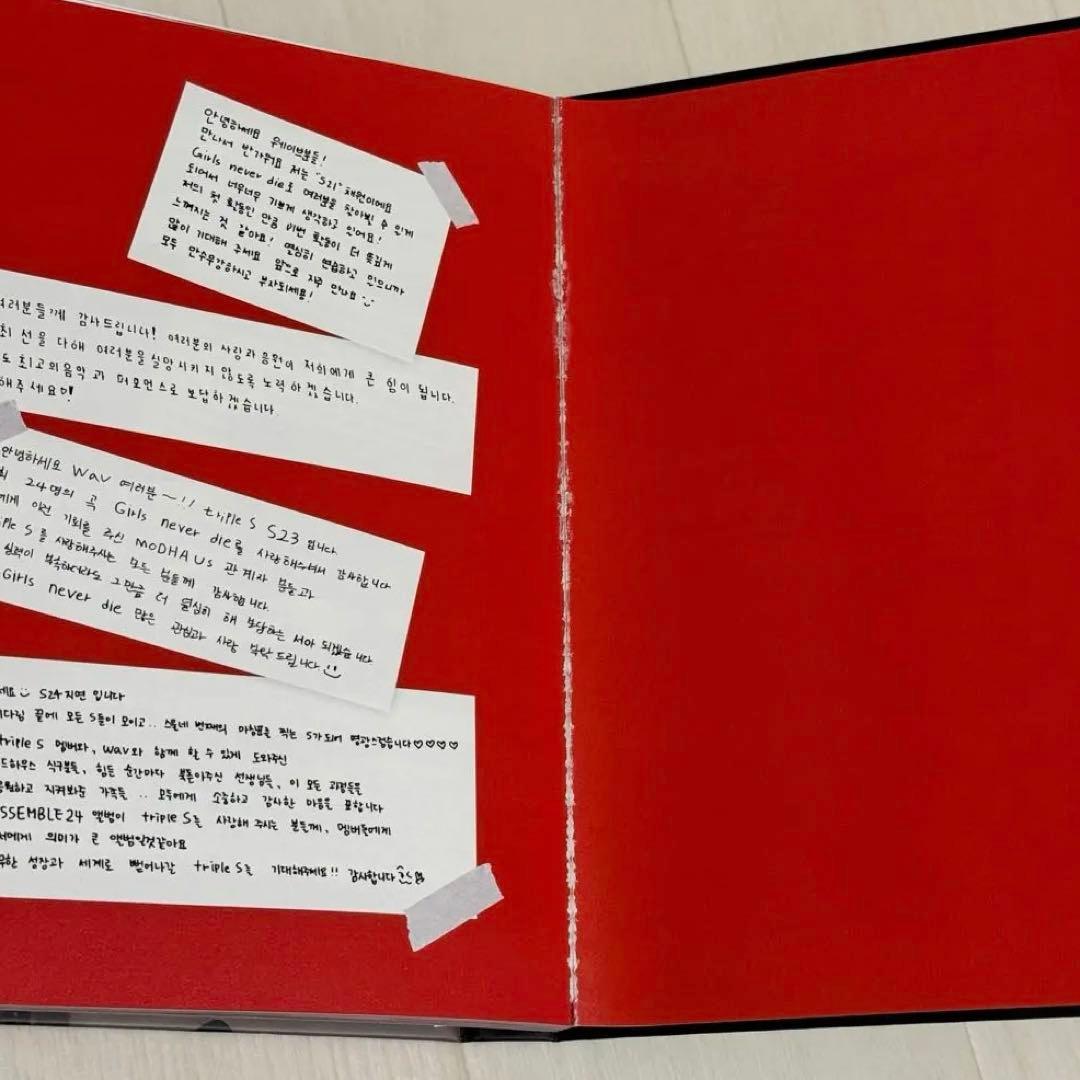 안녕하세요 웨이브분들!
만나서 반가워요 저는 "S21" 채원이에요
Girls never die로 여러분을 찾아뵐 수 있게
되어서 너무너무 기쁘게 생각하고 있어요!
저의 첫 활동인 만큼 이번 활동이 더 뜻깊게
느껴지는 것 같아요! 열심히 연습하고 있으니까
많이 기대해 주세요 앞으로 자주 만나요
모두 만수무강하시고 부자되세요!
여러분들께 감사드립니다! 여러분의 사랑과 응원이 저희에게 큰 힘이 됩니다.
최선을 다해 여러분을 실망시키지 않도록 노력하겠습니다.
도 최고의 음악과 퍼포먼스로 보답하겠습니다.
해주세요♡!
안녕하세요 Wav 여러분~!! triple S S23 입니다.
24명의 곡 Girls never die를 사랑해주셔서 감사합니다
에게 이런 기회를 주신 MODHAUS 관계자 분들과
iple S를 사랑해주시는 모든 분들께 감사합니다.
실력이 부족하더라도 그만큼 더 열심히 해 보답하는 서아 되겠습니다
Girls never die 많은 관심과 사랑 부탁드립니다.
세요 S24 지연 입니다
다림 끝에 모든 S들이 모이고.. 스물네 번째의 마침표를 찍는 S가 되어 영광스럽습니다♡♡♡♡
triple S 멤버와, wav와 함께 할 수 있게 도와주신
드하우스 식구분들, 힘든 순간마다 북돋아주신 선생님들, 이 모든 과정들을
응원하고 지켜봐준 가족들.. 모두에게 소중하고 감사한 마음을 표합니다
SSEMBLE24 앨범이 triple S를 사랑해 주시는 분들께, 멤버들에게
저에게 의미가 큰 앨범일것같아요
무한 성장과 세계로 뻗어나갈 triple S를 기대해주세요!! 감사합니다